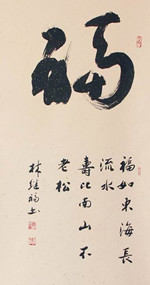 福
福如東海長
流水
壽比南山不
老松
林继福书